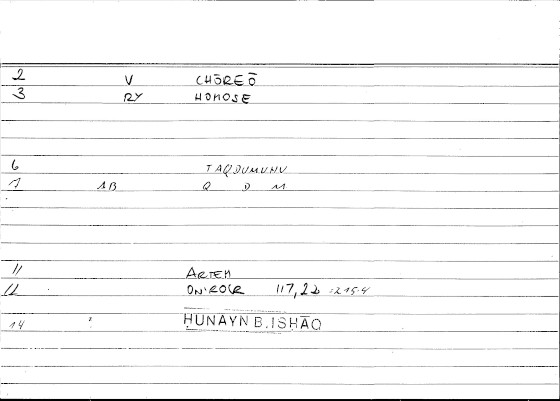 2 V CHŌREŌ
3 RY HOMOSE
6 TAQDUMUHU
7 1B Q D M
11 ARTEM
12 ONIROCR 117,22 :215.4
14 ḤUNAYN B.ISḤĀQ